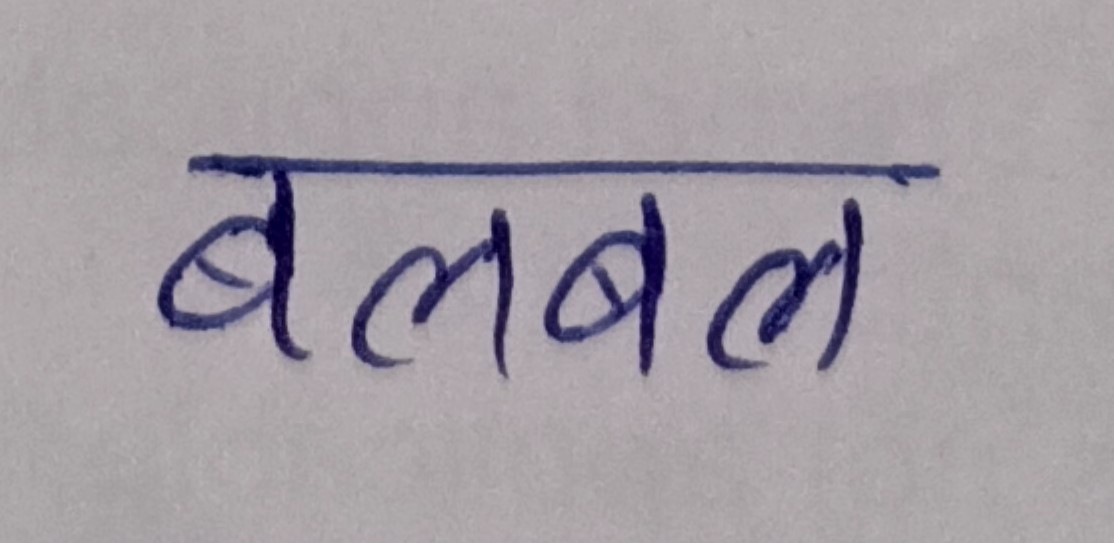 बलबल